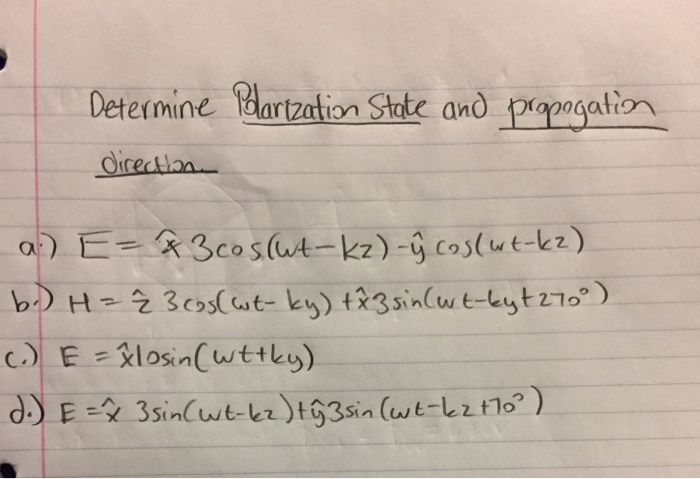 Determine Polarization State and propogation
direction
a.) E = x̂ 3cos(wt-kz) -ŷ cos(wt-kz)
b.) H = ẑ 3cos(wt-ky) +x̂3sin(wt-ky+270°)
c.) E = x̂10sin(wt+ky)
d.) E = x̂ 3sin(wt-kz)+ŷ3sin(wt-kz+70°)